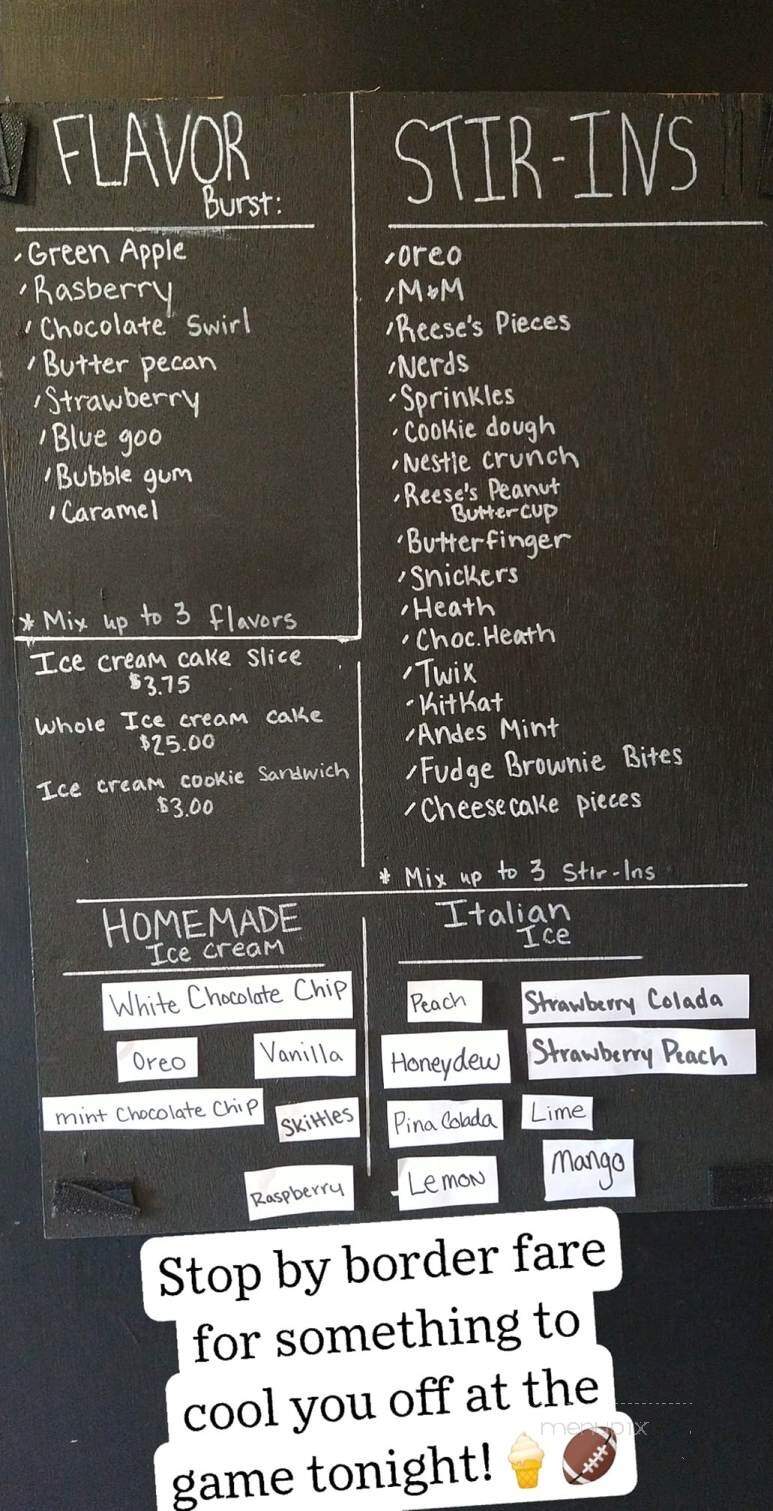 FLAVOR
Burst:
Green Apple
Rasberry
Chocolate Swirl
Butter pecan
Strawberry
Blue goo
Bubble gum
Caramel
* Mix up to 3 flavors
Ice cream cake Slice
$3.75
Whole Ice cream cake
$25.00
Ice cream cookie Sandwich
$3.00
STIR-INS
Oreo
M&M
Reese's Pieces
Nerds
Sprinkles
Cookie dough
Nestle crunch
Reese's Peanut
Buttercup
Butterfinger
Snickers
Heath
Choc. Heath
Twix
KitKat
Andes Mint
Fudge Brownie Bites
Cheesecake pieces
* Mix up to 3 Stir-Ins
HOMEMADE
Ice cream
White Chocolate Chip
Oreo
Vanilla
mint Chocolate Chip
Skittles
Raspberry
Italian
Ice
Peach
Strawberry Colada
Honeydew
Strawberry Peach
Pina Colada
Lime
Lemon
Mango
Stop by border fare
for something to
cool you off at the
game tonight!🍦🏈
menupix